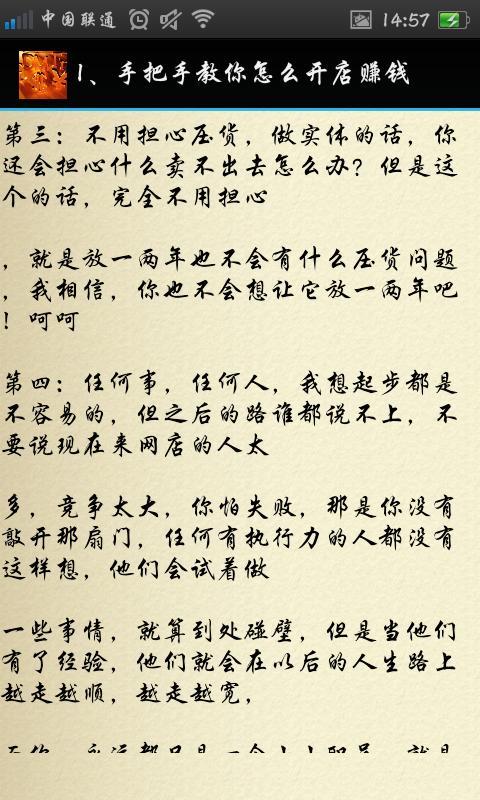 中国联通
14:57
1、手把手教你怎么开店赚钱
第三：不用担心压货，做实体的话，你
还会担心什么卖不出去怎么办？但是这
个的话，完全不用担心
，就是放一两年也不会有什么压货问题
，我相信，你也不会想让它放一两年吧
！呵呵
第四：任何事，任何人，我想起步都是
不容易的，但之后的路谁都说不上，不
要说现在来网店的人太
多，竞争太大，你怕失败，那是你没有
敲开那扇门，任何有执行力的人都没有
这样想，他们会试着做
一些事情，就算到处碰壁，但是当他们
有了经验，他们就会在以后的人生路上
越走越顺，越走越宽，